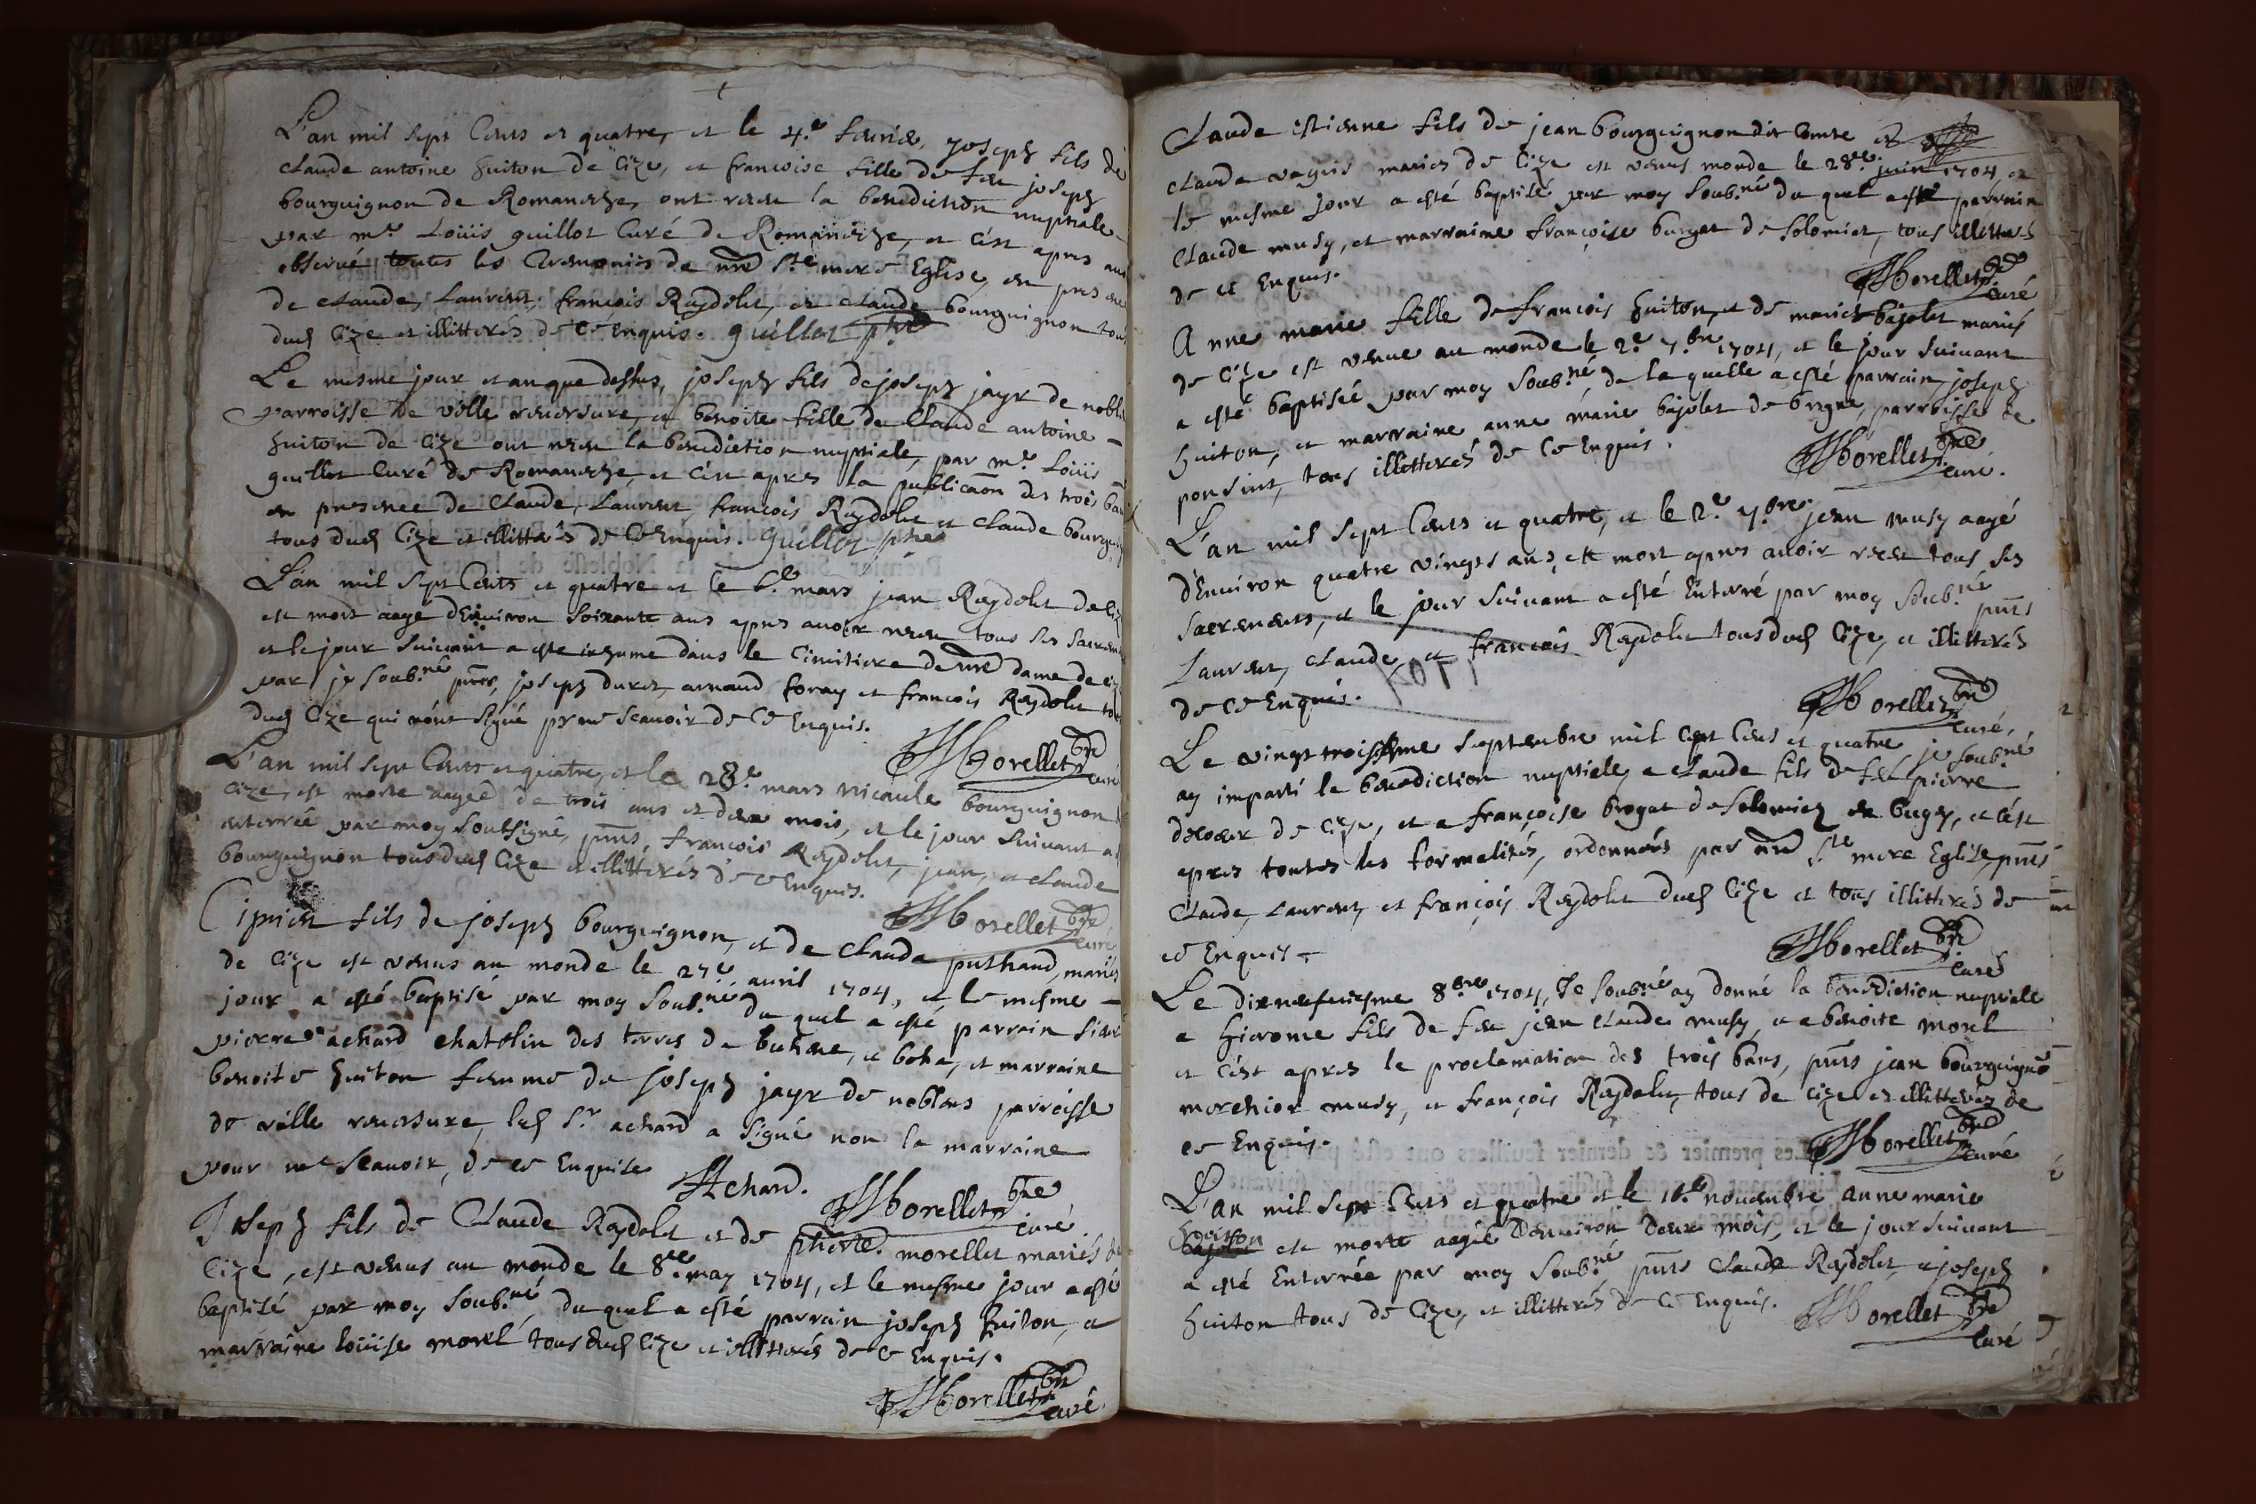 L'an mil sept Cents et quatre, et le 4.e feurier, joseph fils de
claude antoine huiton de Cize, et francoise fille de feu joseph
bourguignon de Romaneche, ont receu la benediction nuptiale
par m.re Loüis guillot Curé de Romaneche, et c'est apres auoir
obserué toutes les Ceremonies de nre S.te mere Eglise, en pnce
de claude, Laurent, francois Raydolet, et claude bourguignon tous
dud Cize et illitterés de Ce Enquis. guillot ptre
Le mesme jour et an que dessus, joseph fils de joseph jayr de nobles
parroisse de ville reuersure, et benoite fille de Claude antoine
huiton de Cize ont receu la benediction nuptiale, par m.re Loüis
guillot Curé de Romaneche, et c'est apres la publicaon des trois bans
en presence de Claude, Laurent francois Raydolet et claude bourguignon
tous dud Cize et illitterés de Ce Enquis. Guillot ptre
L'an mil sept Cents et quatre et le 6.e mars jean Raydolet de Cize
est mort aagé d'Enuiron soixante ans apres auoir receu tous ses sacrements
et le jour suiuant a esté inhumé dans le Cimitiere de nre dame de Cize
par je soub.né pnts, joseph duret, arnaud foray et francois Raydolet tous
dud Cize qui n'ont signé pr ne scauoir de Ce Enquis.
Morellet bre
curé
L'an mil sept Cents et quatre, et le 28.e mars nicaule bourguignon
Cize, est morte aagée de trois ans et deux mois, et le jour suiuant a
enterrée par moy soubsigné, pnts, francois Raydolet, jean, et claude
bourguignon tous dud Cize et illitterés de ce Enquis.
Morellet bre
curé
Ciprien fils de joseph bourguignon, et de claude puthaud, mariés
de Cize est venus au monde le 27.e auril 1704, et le mesme
jour a esté baptisé par moy soub.né du quel a esté parrain sieur
pierre achard chatelin des terres de buhene, et bohe, et marraine
benoite huiton femme de joseph jayr de nobles parroisse
de ville reuersure, led s.r achard a signé non la marraine
pour ne scauoir, de ce Enquise
Achard. Morellet bre
curé
Joseph fils de Claude Raydolet et de morellet mariés de
Cize, est venus au monde le 8.e may 1704, et le mesme jour a esté
baptisé par moy soub.né, du quel a esté parrain joseph huiton, et
marraine loüise morel tous dud Cize et illitterés de Ce Enquis.
Morellet bre
curé
Claude estienne fils de jean bourguignon dit Comte et
claude mariés de Cize est venus monde le 28.e juin 1704, et
le mesme jour a esté baptisé par moy soub.né du quel a esté parrain
Claude musy, et marraine françoise burgat de solomiat, tous illitterés
de ce Enquis.
Morellet bre
curé
Anne marie fille de francois huiton, et de marie bajolet mariés
de Cize est venue au monde le 2.e 7.bre 1704, et le jour suiuant
a esté baptisée par moy soub.né, de la quelle a esté parrain, joseph
huiton, et marraine anne marie bajolet de brogne, parroisse de
poncint, tous illitterés de Ce Enquis.
Morellet bre
curé.
L'an mil sept Cents et quatre, et le 2.e 7.bre jean musy aagé
d'Enuiron quatre vingts ans, est mort apres auoir receu tous ses
sacrements, et le jour suiuant a esté Enterré par moy soub.né pnts
Laurent, claude, et francois Raydolet tous dud Cize, et illitterés
de Ce Enquis.
Morellet bre
curé,
Le vingt troisiesme septembre mil sept Cens et quatre je soub.né
ay imparti la benediction nuptiale, a claude fils de feu pierre
de Cize, et a françoise brogat de solomiat en bugey, et c'est
apres toutes les formalités, ordonnées par nre S.te mere Eglize, pnts
Claude, Laurent, et françois Raydolet dud Cize et tous illitterés de
ce Enquis
Morellet bre
curé
Le dixneufuiesme 8.bre 1704, Je soub.né ay donné la benediction nuptiale
a hierome fils de feu jean claude musy, et a benoite morel
et c'est apres la proclamation des trois bans, pnts jean bourguignon
merchior musy, et françois Raydolet, tous de Cize et illitterés de
ce Enquis.
Morellet bre
curé
L'an mil sept Cents et quatre et le 16.e nouembre anne marie
huitton est morte aagée d'enuiron deux mois, et le jour suiuant
a esté Enterrée par moy soub.né pnts Claude Raydolet, et joseph
huiton tous de Cize, et illitterés de Ce Enquis.
Morellet bre
Curé